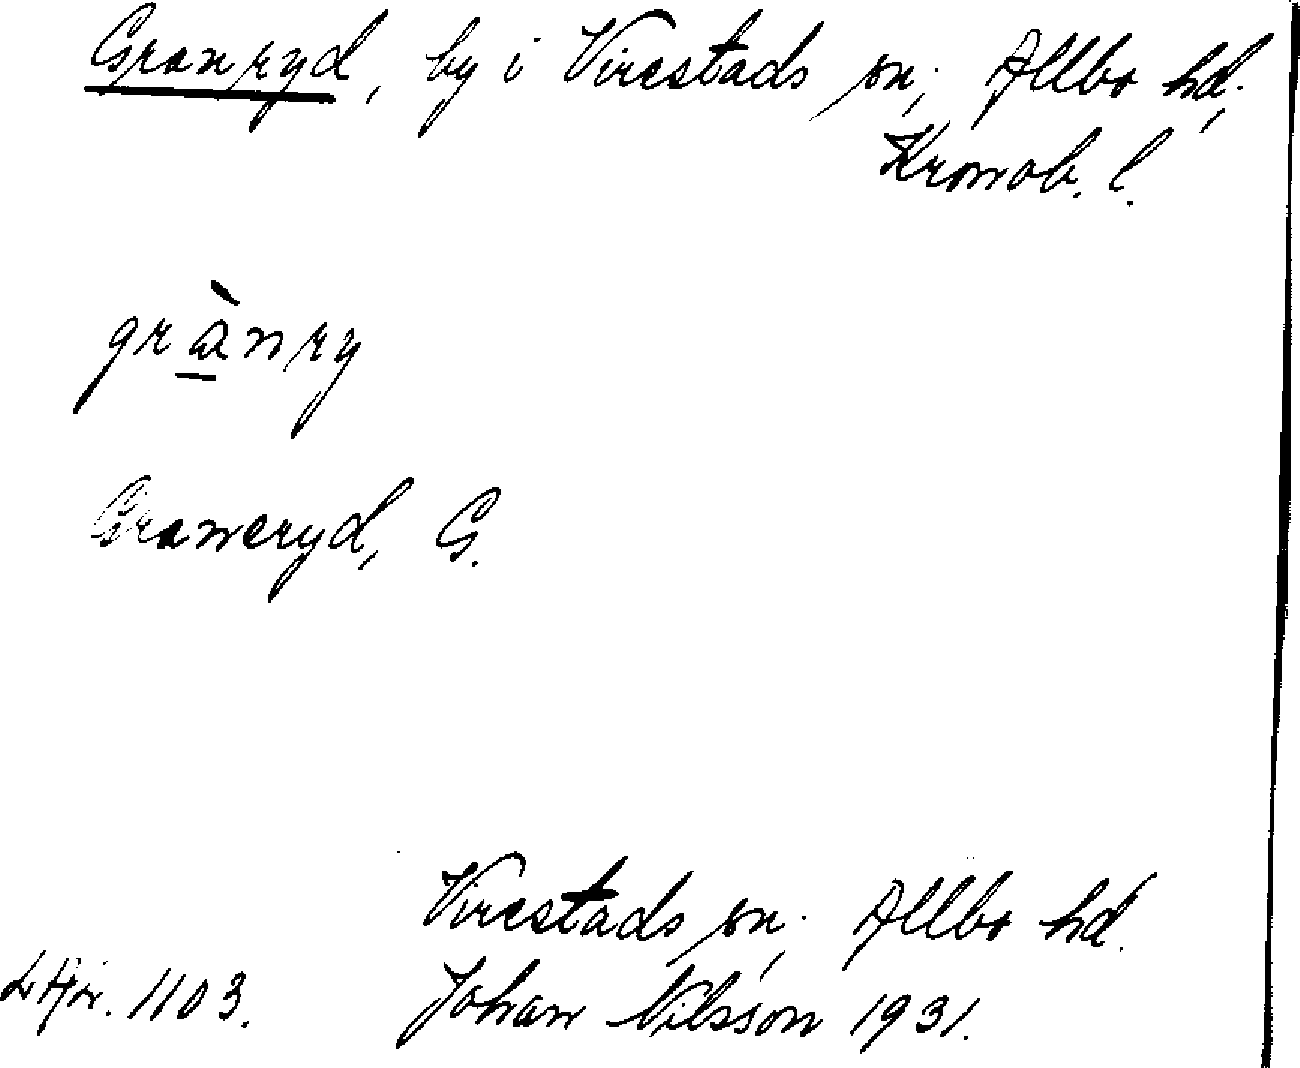 Granryd, by i Virestads sn, Allbo hd,
Kronob. l.
grànry
Graneryd, G.
Virestads sn, Allbo hd.
1103. Johan Nilsson 1931.